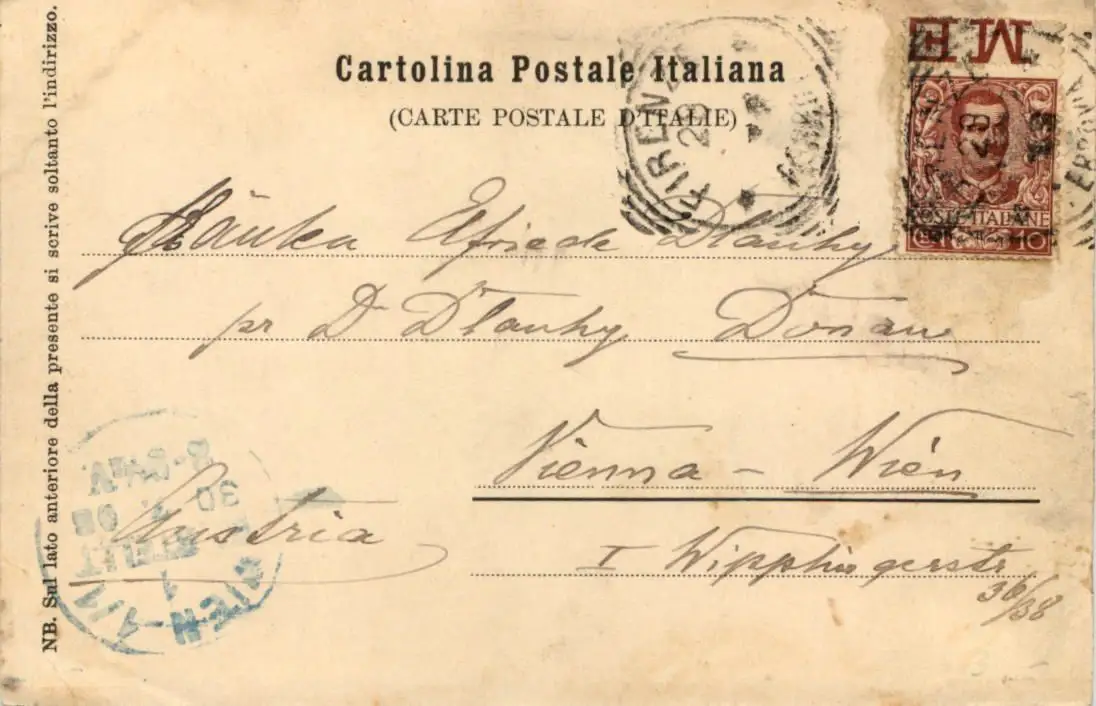 Cartolina Postale Italiana
(CARTE POSTALE D'ITALIE)
NB. Sul lato anteriore della presente si scrive soltanto l'indirizzo.
FIRENZE
28
FERROVIA
ME
POSTE ITALIANE
10
Dlauhy
pr Dr Dlauhy Donau
Vienna - Wien
Austria
I Wipplingerstr
36/38
WIEN 1/1
BESTELLT
30